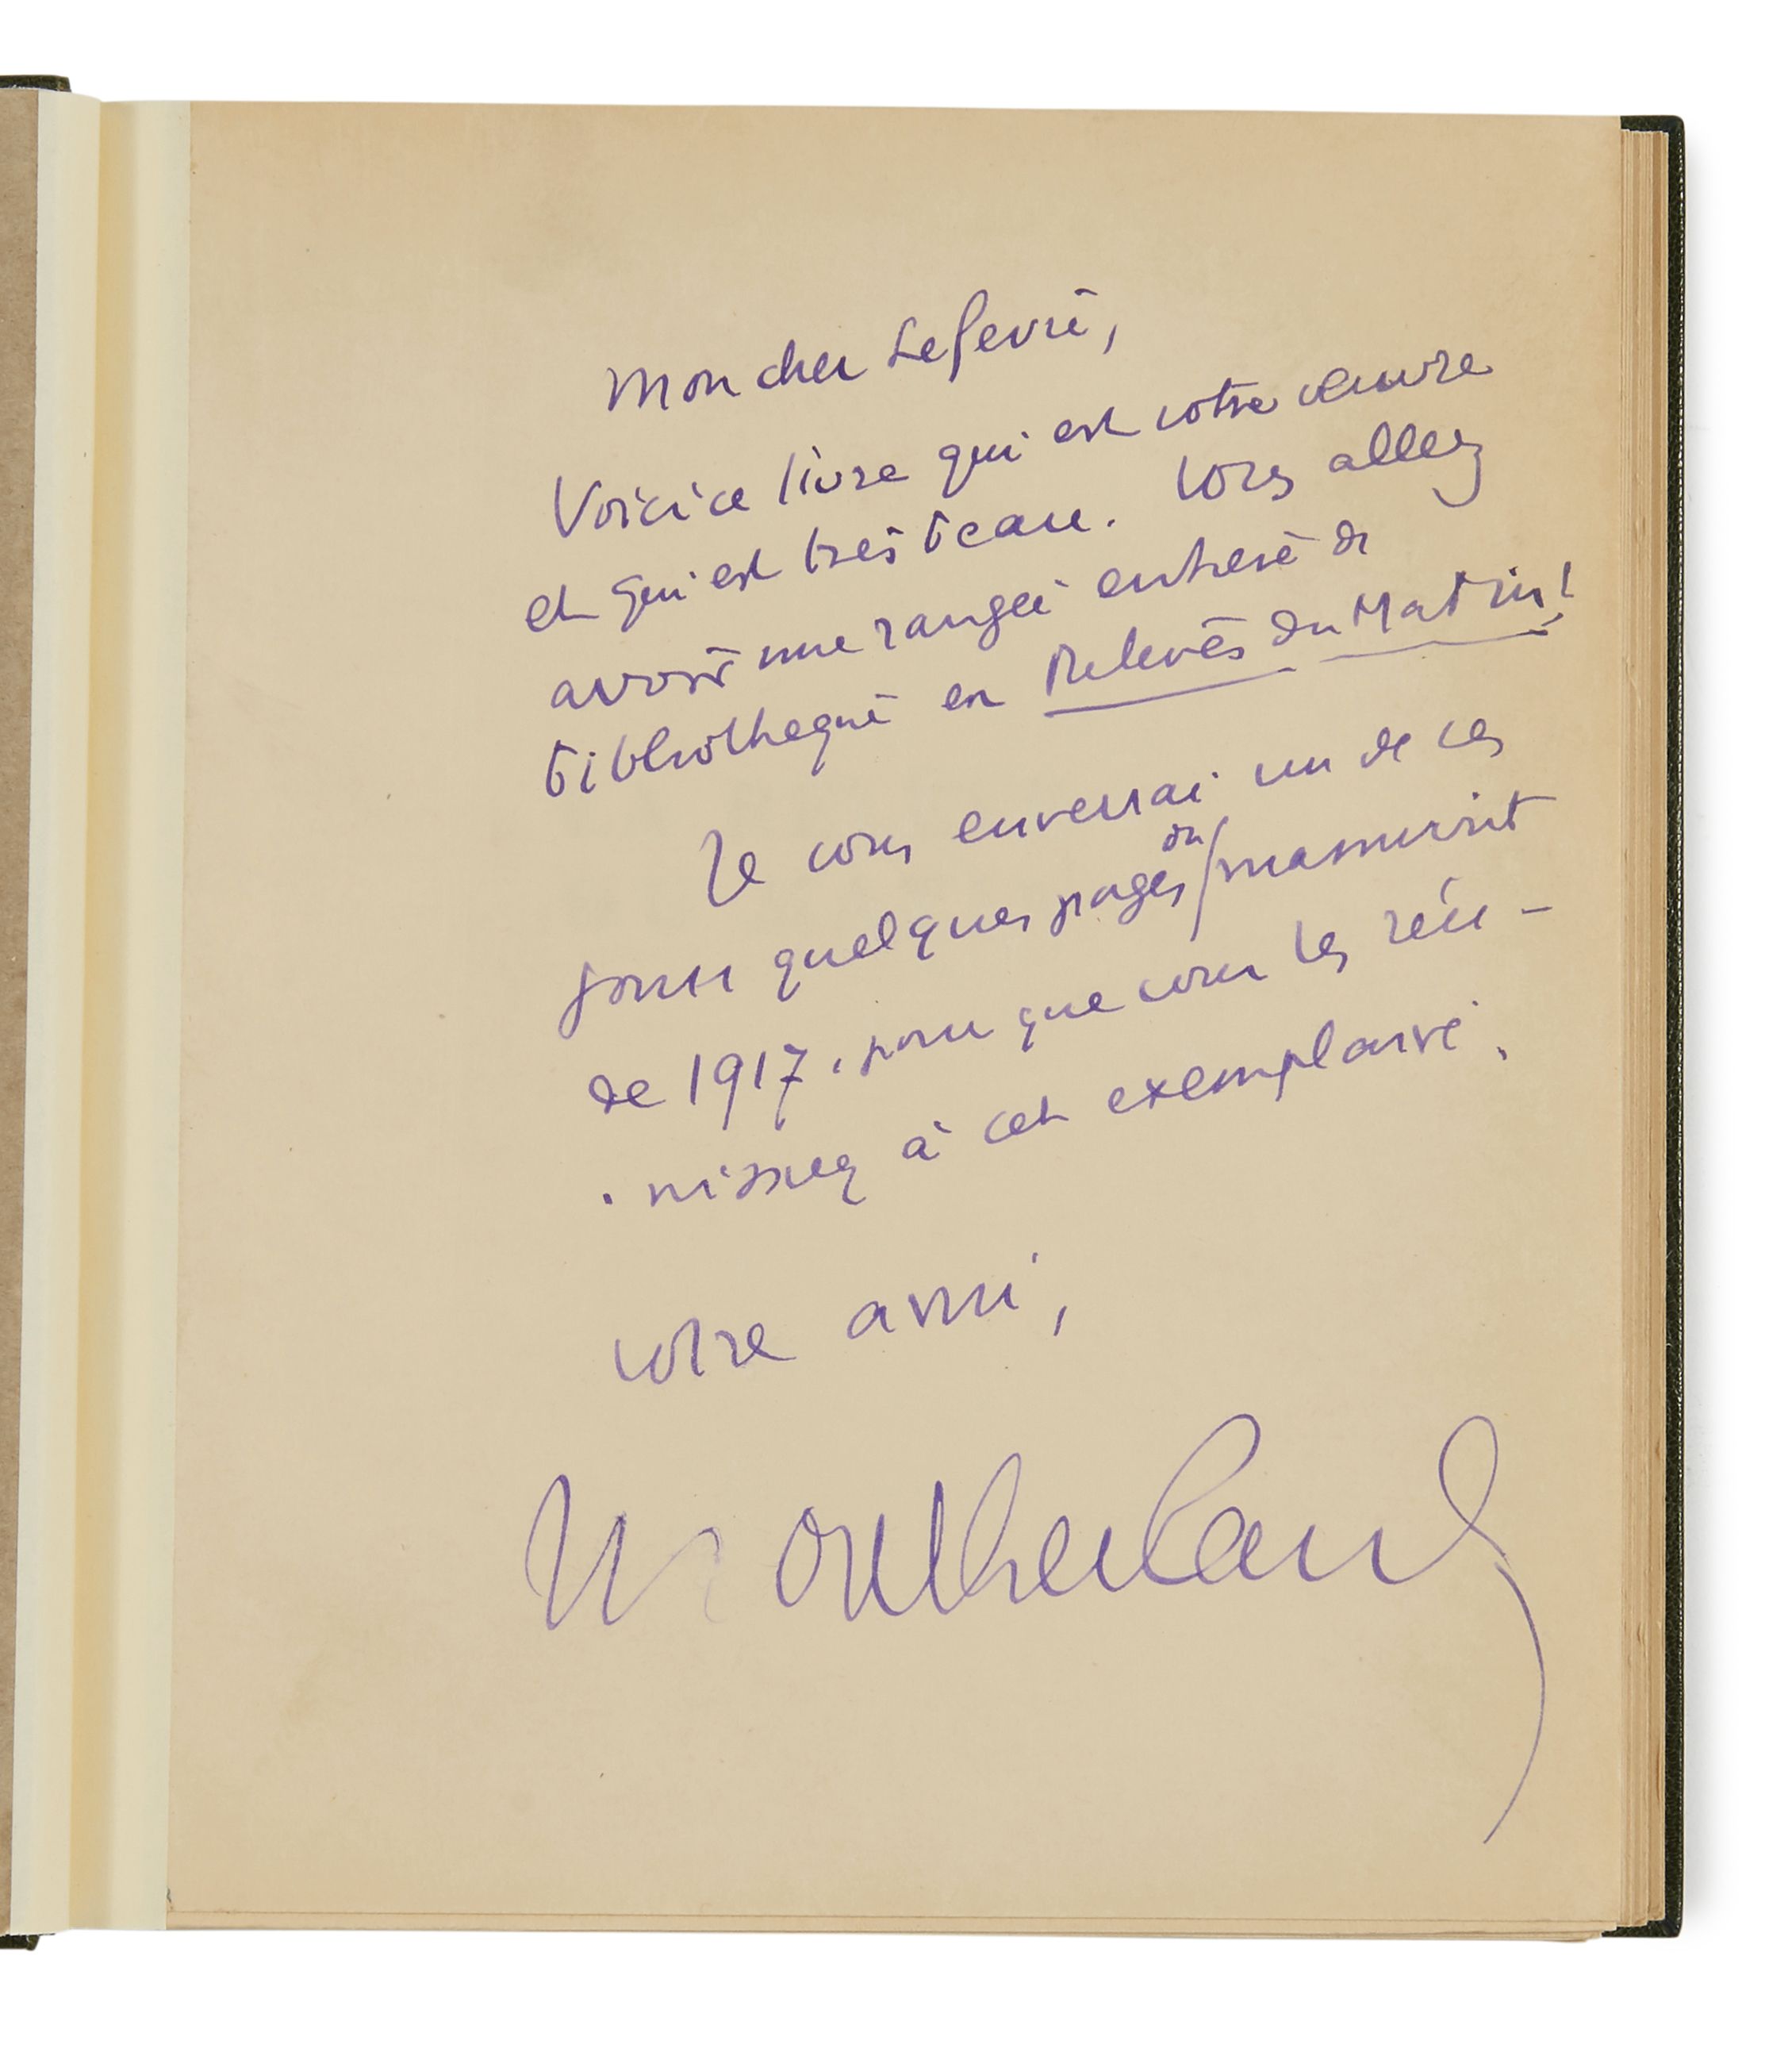 Mon cher Lefevre,
Voici ce livre qui est votre œuvre
et qui est très beau. Vous allez
avoir une rangée entière de
bibliothèque en Relèves du Matin !
Je vous enverrai un de ces
jours quelques pages du manuscrit
de 1917, pour que vous les réu-
-nissiez à cet exemplaire.
votre ami,
Montherlant